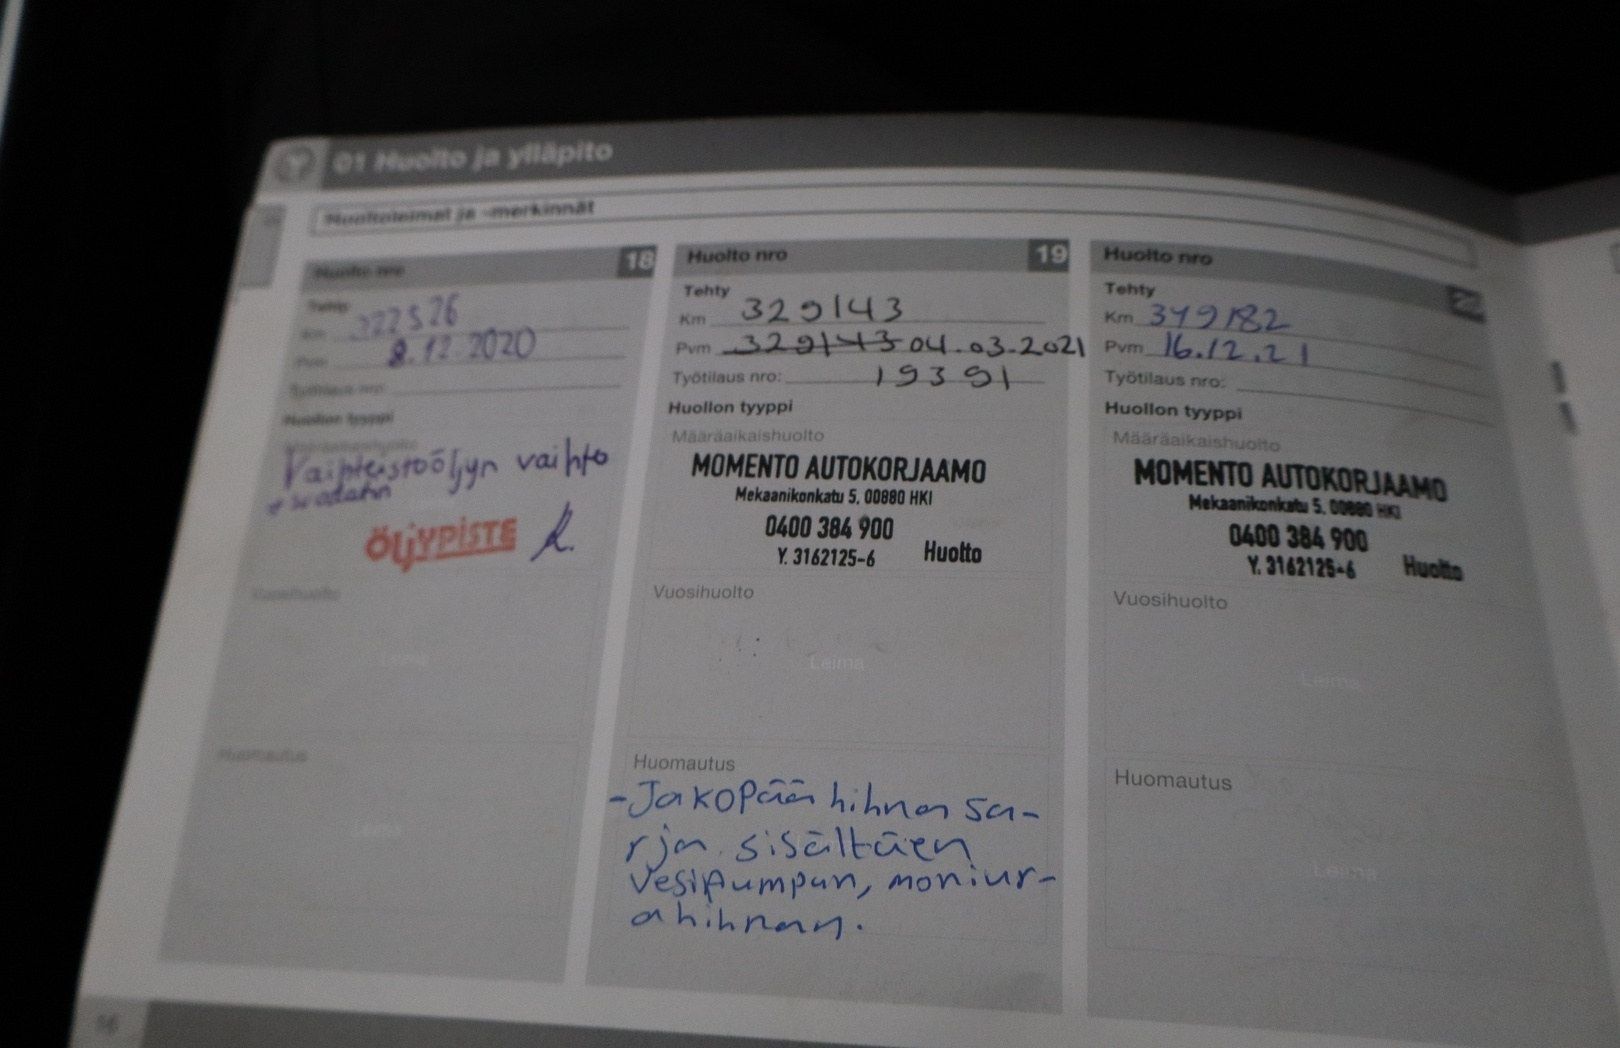 01 Huolto ja ylläpito
Huoltoleimat ja -merkinnät
Huolto nro 18
Tehty
Km 322526
Pvm 8.12.2020
Työtilaus nro:
Huollon tyyppi
Määräaikaishuolto
Vaihteistoöljyn vaihto
ÖLJYPISTE
Vuosihuolto
Leima
Huomautus
Leima
16
Huolto nro 19
Tehty
Km 329143
Pvm 329143 04.03.2021
Työtilaus nro: 19391
Huollon tyyppi
Määräaikaishuolto
MOMENTO AUTOKORJAAMO
Mekaanikonkatu 5, 00880 HKI
0400 384 900
Y. 3162125-6 Huolto
Vuosihuolto
Leima
Huomautus
-Jakopää hihna sa-
rja sisältäen
Vesipumpun, moniur-
ahihnan.
Huolto nro
Tehty
Km 349182
Pvm 16.12.21
Työtilaus nro:
Huollon tyyppi
Määräaikaishuolto
MOMENTO AUTOKORJAAMO
Mekaanikonkatu 5, 00880 HKI
0400 384 900
Y. 3162125-6 Huolto
Vuosihuolto
Leima
Huomautus
Leima